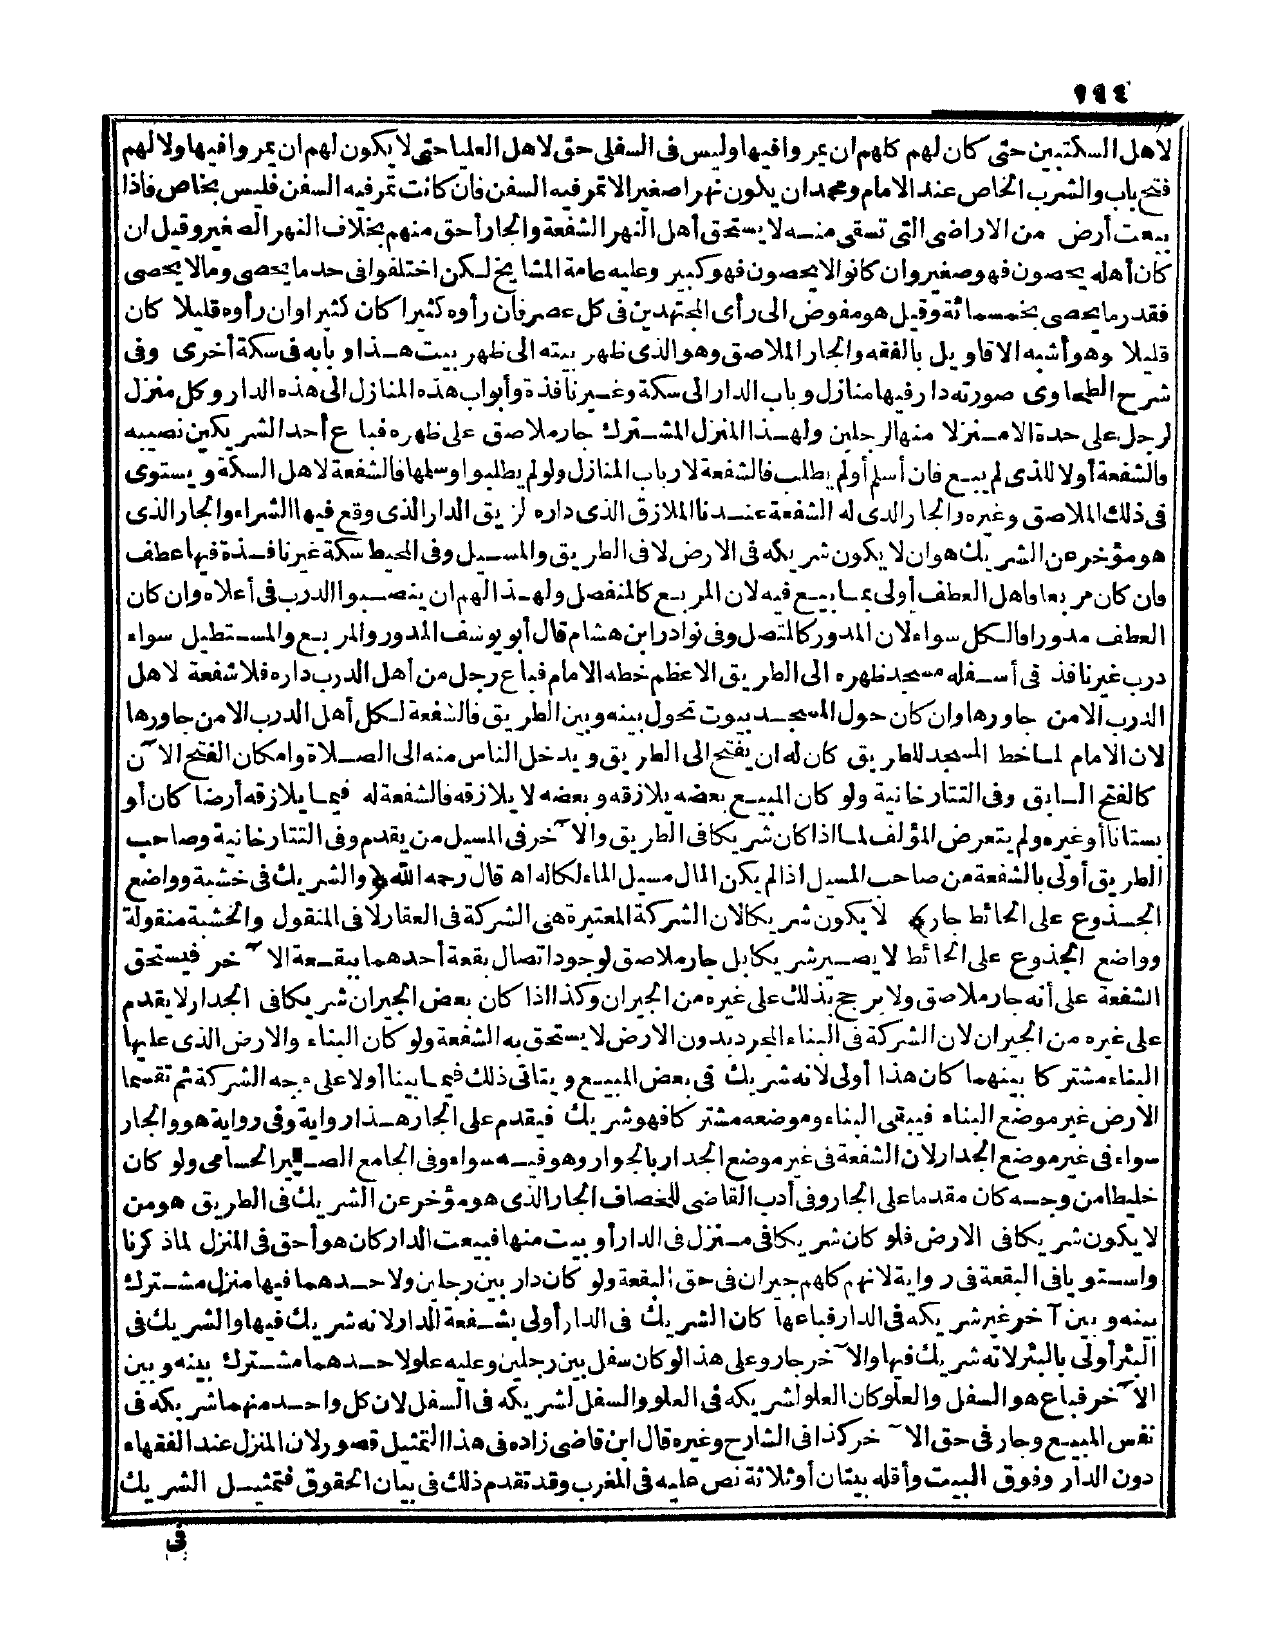 ١٤٤
لاهل السكتين حتى كان لهم كلهم ان يمروا فيها وليس فى السفلى حق لاهل العليا حتى لا يكون لهم ان يمروا فيها ولا لهم
فتح باب والشرب الخاص عند الامام ومحمد ان يكون نهرا صغيرا لا تمر فيه السفن فان كانت تمر فيه السفن فليس بخاص فاذا
بيعت أرض من الاراضى التى تسقى منه لا يستحق أهل النهر الشفعة والجار أحق منهم بخلاف النهر الصغير وقيل ان
كان أهله يحصون فهو صغير وان كانوا لا يحصون فهو كبير وعليه عامة المشايخ لكن اختلفوا فى حد ما يحصى وما لا يحصى
فقدر ما يحصى بخمسمائة وقيل هو مفوض الى رأى المجتهدين فى كل عصر فان رأوه كثيرا كان كثيرا وان رأوه قليلا كان
قليلا وهو أشبه الاقاويل بالفقه والجار الملاصق وهو الذى ظهر بيته الى ظهر بيت هذا وبابه فى سكة أخرى وفى
شرح الطحاوى صورته دار فيها منازل وباب الدار الى سكة وغير نافذة وأبواب هذه المنازل الى هذه الدار وكل منزل
لرجل على حدة الا منزلا منها لرجلين ولهذا المنزل المشترك جار ملاصق على ظهره فباع أحد الشريكين نصيبه
فالشفعة أولا للذى لم يبع فان أسلم أو لم يطلب فالشفعة لارباب المنازل ولو لم يطلبوا وسلموا فالشفعة لاهل السكة ويستوى
فى ذلك الملاصق وغيره والجار الذى له الشفعة عندنا الملازق الذى داره لزيق الدار الذى وقع فيها الشراء والجار الذى
هو مؤخر عن الشريك هو ان لا يكون شريكه فى الارض لا فى الطريق والمسيل وفى المحيط سكة غير نافذة فيها عطف
فان كان مربعا فاهل العطف أولى بما بيع فيه لان المربع كالمنفصل ولهذا لهم ان ينصبوا الدرب فى أعلاه وان كان
العطف مدورا فالكل سواء لان المدور كالمتصل وفى نوادر ابن هشام قال أبو يوسف المدور والمربع والمستطيل سواء
درب غير نافذ فى أسفله مسجد ظهره الى الطريق الاعظم خطه الامام فباع رجل من أهل الدرب داره فلا شفعة لاهل
الدرب الا من جاورها وان كان حول المسجد بيوت تحول بينه وبين الطريق فالشفعة لكل أهل الدرب الا من جاورها
لان الامام لما خط المسجد للطريق كان له ان يفتح الى الطريق ويدخل الناس منه الى الصلاة وامكان الفتح الآن
كالفتح السابق وفى التتارخانية ولو كان المبيع بعضه يلازقه وبعضه لا يلازقه فالشفعة له فيما يلازقه أرضا كان أو
بستانا أو غيره ولم يتعرض المؤلف لما اذا كان شريكا فى الطريق والآخر فى المسيل من يقدم وفى التتارخانية وصاحب
الطريق أولى بالشفعة من صاحب المسيل اذا لم يكن المال مسيل الماء لكاله اه قال رحمه الله ﴿والشريك فى خشبة وواضع
الجذوع على الحائط جار﴾ لا يكون شريكا لان الشركة المعتبرة هى الشركة فى العقار لا فى المنقول والخشبة منقولة
وواضع الجذوع على الحائط لا يصير شريكا بل جار ملاصق لوجود اتصال بقعة أحدهما ببقعة الآخر فيستحق
الشفعة على أنه جار ملاصق ولا يرجح بذلك على غيره من الجيران وكذا اذا كان بعض الجيران شريكا فى الجدار لا يقدم
على غيره من الجيران لان الشركة فى البناء المجرد بدون الارض لا يستحق به الشفعة ولو كان البناء والارض الذى عليها
البناء مشتركا بينهما كان هذا أولى لانه شريك فى بعض المبيع ويتاتى ذلك فيما بينا أولا على وجه الشركة ثم تقسما
الارض غير موضع البناء فيبقى البناء وموضعه مشتركا فهو شريك فيقدم على الجار هذا رواية وفى رواية هو والجار
سواء فى غير موضع الجدار لان الشفعة فى غير موضع الجدار بالجوار وهو فيه سواء وفى الجامع الصغير الحسامى ولو كان
خليطا من وجه كان مقدما على الجار وفى أدب القاضى للخصاف الجار الذى هو مؤخر عن الشريك فى الطريق هو من
لا يكون شريكا فى الارض فلو كان شريكا فى منزل فى الدار أو بيت منها فبيعت الدار كان هو أحق فى المنزل لما ذكرنا
واستويا فى البقعة فى رواية لانهم كلهم جيران فى حق البقعة ولو كان دار بين رجلين ولاحدهما فيها منزل مشترك
بينه وبين آخر غير شريكه فى الدار فباعها كان الشريك فى الدار أولى بشفعة الدار لانه شريك فيها والشريك فى
البئر أولى بالبئر لانه شريك فيها والآخر جار وعلى هذا لو كان سفل بين رجلين وعليه علو لاحدهما مشترك بينه وبين
الآخر فباع هو السفل والعلو كان العلو لشريكه فى العلو والسفل لشريكه فى السفل لان كل واحد منهما شريكه فى
نفس المبيع وجار فى حق الآخر كذا فى الشارح وغيره قال ابن قاضى زاده فى هذا التمثيل قصور لان المنزل عند الفقهاء
دون الدار وفوق البيت وأقله بيتان أو ثلاثة نص عليه فى المغرب وقد تقدم ذلك فى بيان الحقوق فتمثيل الشريك
فى